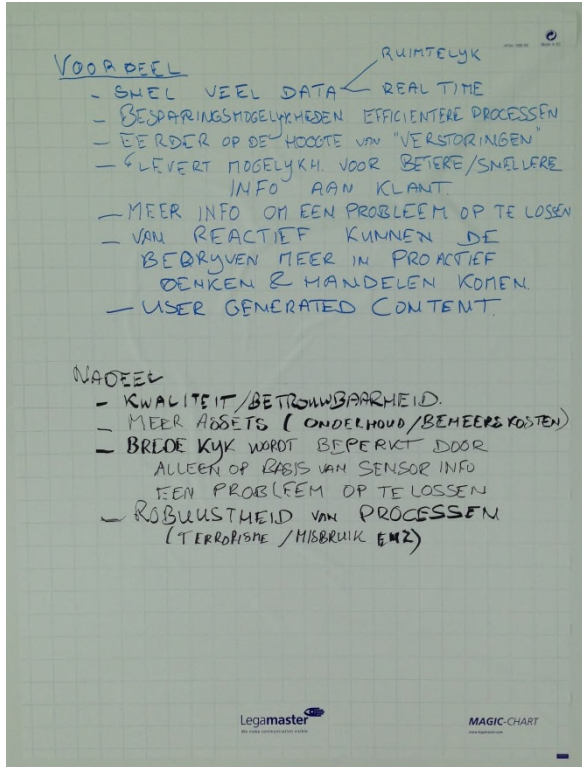 RUIMTELYK
VOORDEEL
- SNEL VEEL DATA < REAL TIME
- BESPARINGSMOGELYKHEDEN EFFICIENTERE PROCESSEN
- EERDER OP DE HOOGTE VAN "VERSTORINGEN"
- LEVERT MOGELYKH. VOOR BETERE/SNELLERE
INFO AAN KLANT.
- MEER INFO OM EEN PROBLEEM OP TE LOSSEN
- VAN REACTIEF KUNNEN DE
BEDRYVEN MEER IN PROACTIEF
DENKEN & HANDELEN KOMEN.
- USER GENERATED CONTENT.
NADEEL
- KWALITEIT/BETROUWBAARHEID.
- MEER ASSETS (ONDERHOUD/BEHEERSKOSTEN)
- BREDE KYK WORDT BEPERKT DOOR
ALLEEN OP BASIS VAN SENSOR INFO
EEN PROBLEEM OP TE LOSSEN
- ROBUUSTHEID VAN PROCESSEN
(TERRORISME/MISBRUIK ENZ)
Legamaster
We make communication visible
MAGIC-CHART
www.legamaster.com